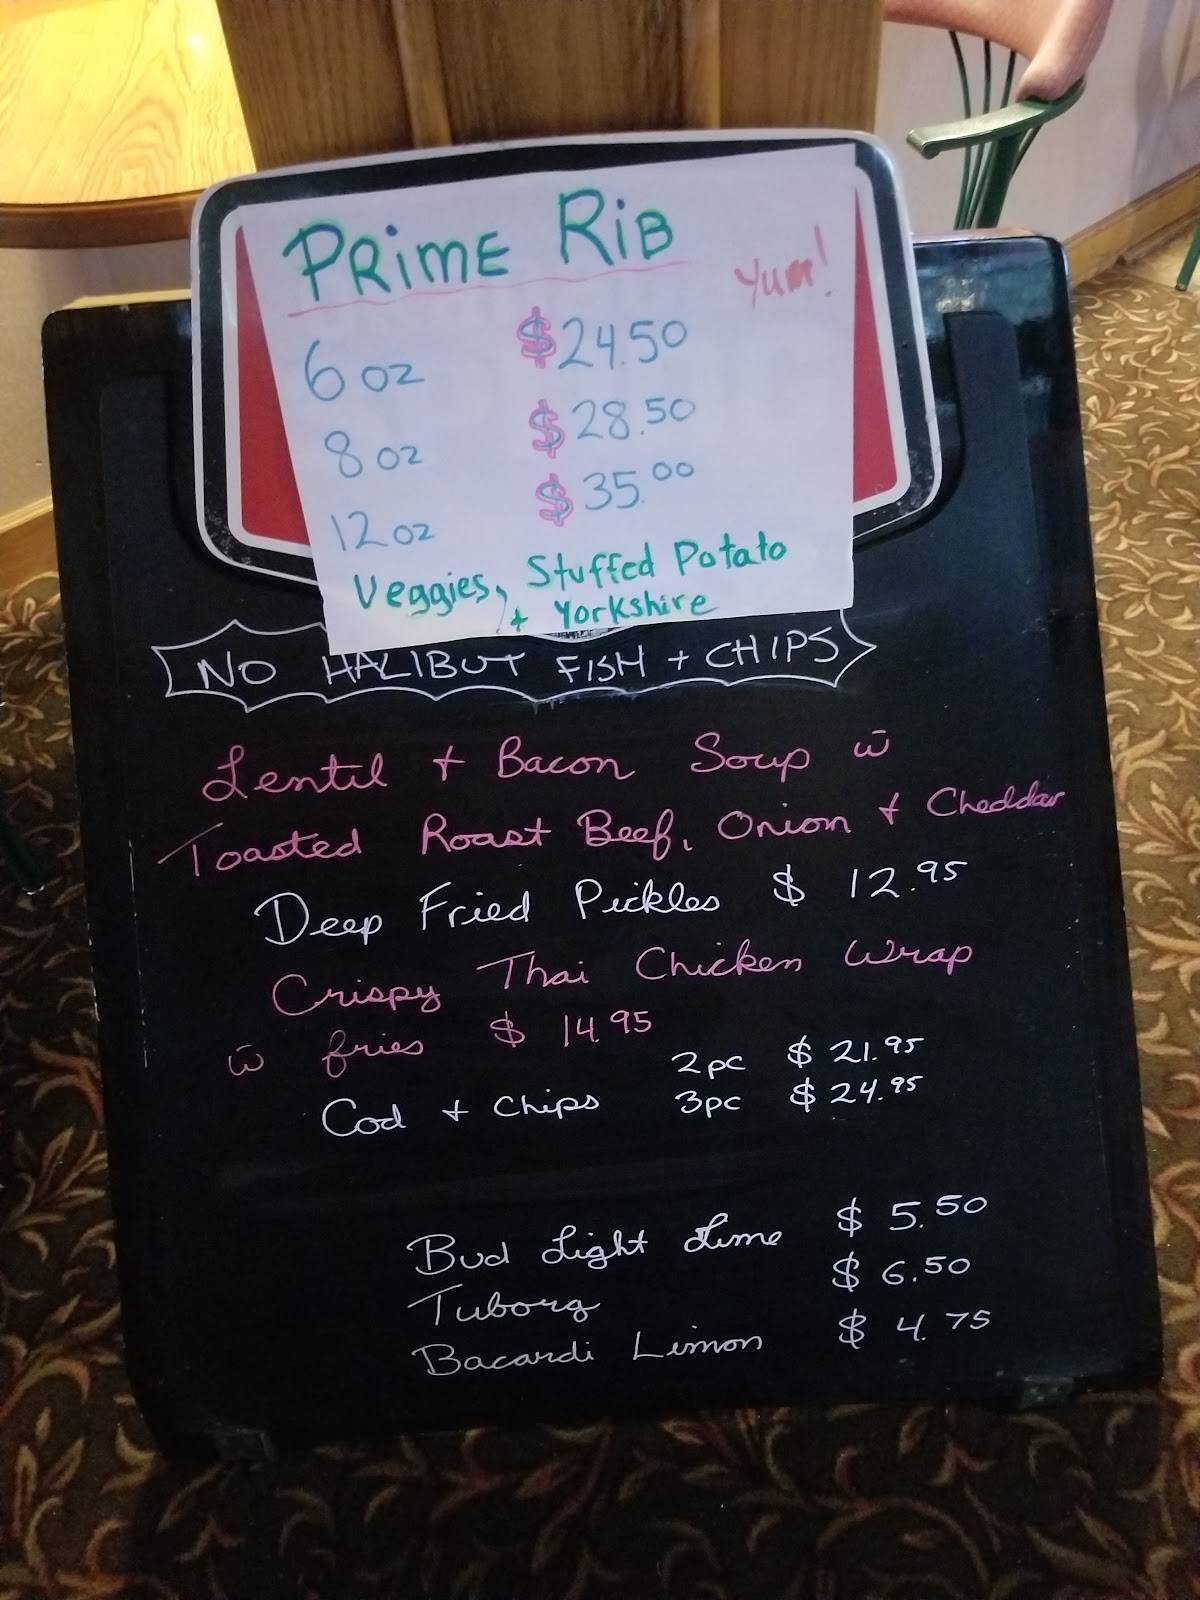 PRIME RIB
Yum!
6 oz $24.50
8 oz $28.50
12 oz $35.00
Veggies, Stuffed Potato
+ Yorkshire
NO HALIBUT FISH + CHIPS
Lentil + Bacon Soup w̄
Toasted Roast Beef, Onion + Cheddar
Deep Fried Pickles $ 12.95
Crispy Thai Chicken Wrap
w̄ fries $ 14.95
2pc $ 21.95
Cod + Chips 3pc $ 24.95
Bud Light Lime $ 5.50
Tuborg $ 6.50
Bacardi Limon $ 4.75